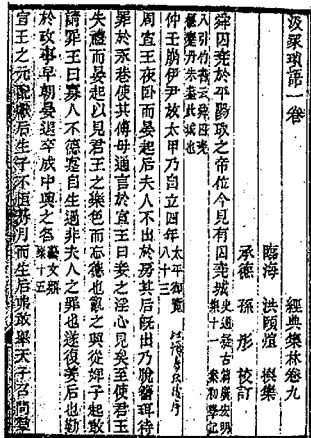 汲冢瑣語一卷
經典集林卷九
臨海 洪頤煊 撰集
承德 孫彤 校訂
舜囚堯於平陽取之帝位今見有囚堯城
仲壬崩伊尹放太甲乃自立四年太平御覽
八十三
周宣王夜臥而晏起后夫人不出於房姜后既出乃脫簪珥待
罪於永巷使其傅母通言於宣王曰妾之淫心見矣至使君王
失禮而晏起以見君王之樂色而忘德也亂之興從婢子起敢
請罪王曰寡人不德寔自生過非夫人之罪也遂復姜后也勤
於政事早朝晏退卒成中興之名
宣王之元妃獻后生子不恒期月而生后弗敢舉天子召問羣